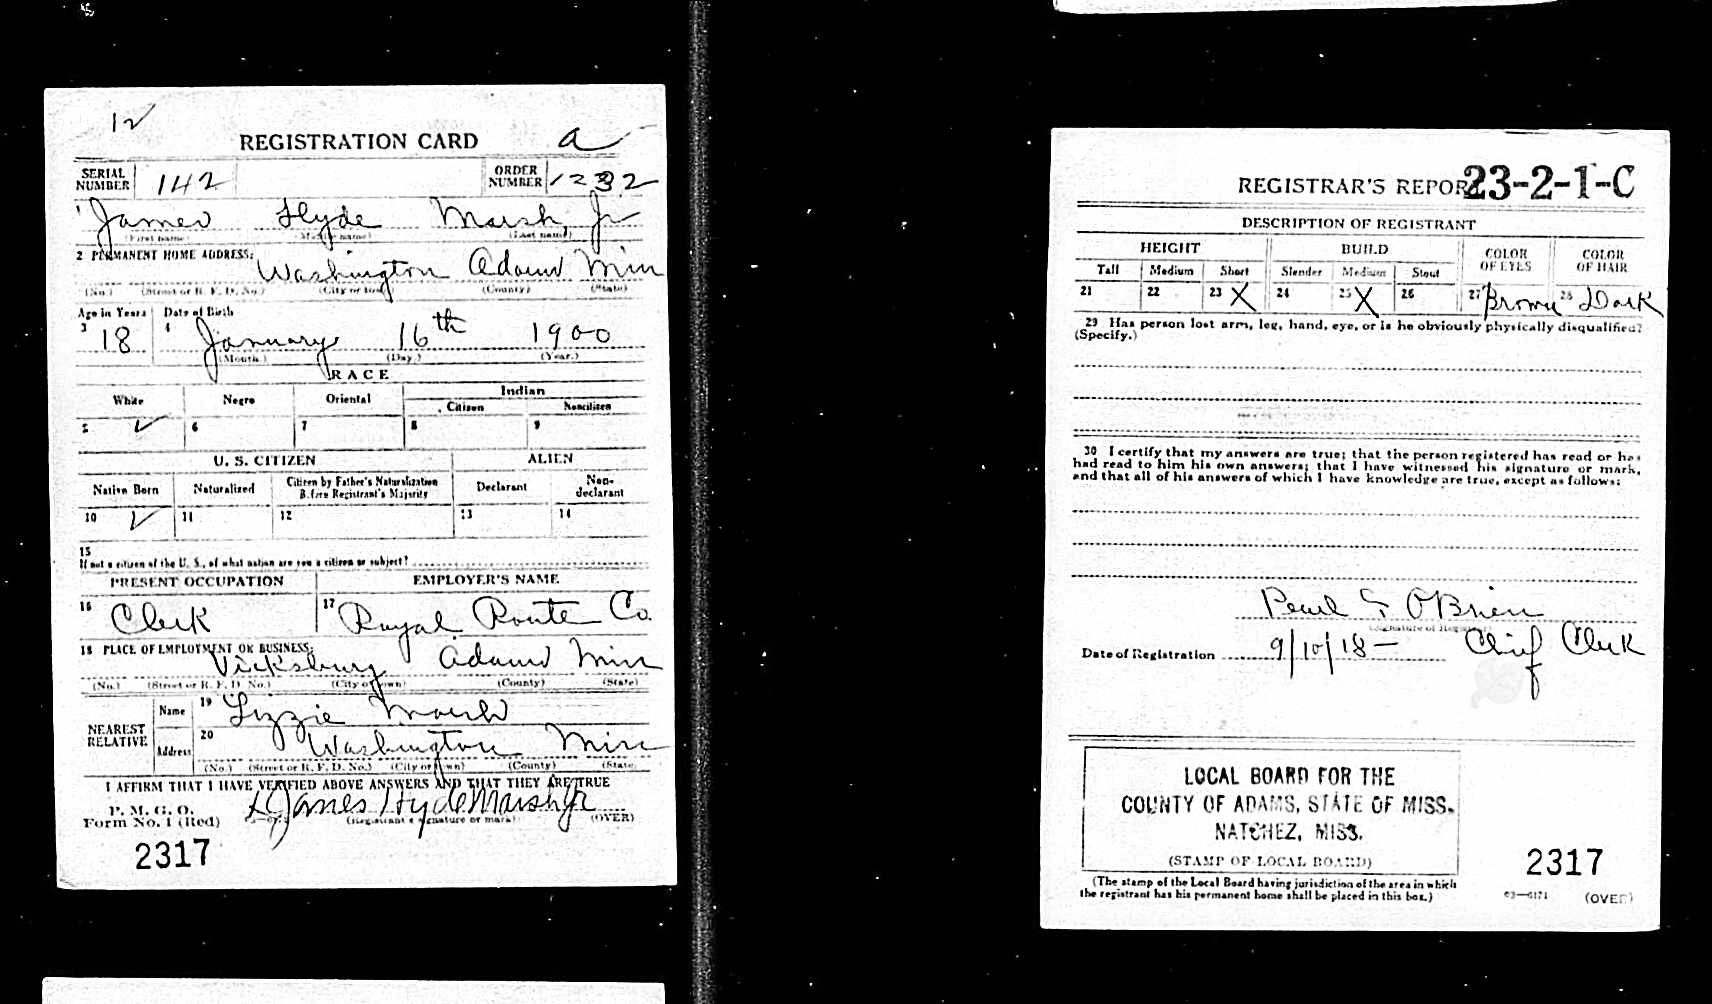 12
REGISTRATION CARD a
SERIAL NUMBER 142 ORDER NUMBER 1232
1 James Hyde Marsh Jr
(First name) (Middle name) (Last name)
2 PERMANENT HOME ADDRESS:
Washington Adams Miss
(No.) (Street or R. F. D. No.) (City or town) (County) (State)
Age in Years Date of Birth
3 18 4 January 16th 1900
(Month.) (Day.) (Year.)
RACE
White Negro Oriental Indian
Citizen Noncitizen
5 ✓ 6 7 8 9
U. S. CITIZEN ALIEN
Native Born Naturalized Citizen by Father's Naturalization Before Registrant's Majority Declarant Non-declarant
10 ✓ 11 12 13 14
15
If not a citizen of the U. S., of what nation are you a citizen or subject?
PRESENT OCCUPATION EMPLOYER'S NAME
16 Clerk 17 Royal Route Co.
18 PLACE OF EMPLOYMENT OR BUSINESS:
Vicksburg Adams Miss
(No.) (Street or R. F. D. No.) (City or town) (County) (State)
NEAREST RELATIVE
Name 19 Lizzie Marsh
Address 20 Washington Miss
(No.) (Street or R. F. D. No.) (City or town) (County) (State)
I AFFIRM THAT I HAVE VERIFIED ABOVE ANSWERS AND THAT THEY ARE TRUE
P. M. G. O.
Form No. 1 (Red) James Hyde Marsh Jr
(Registrant's signature or mark) (OVER)
2317
REGISTRAR'S REPORT 23-2-1-C
DESCRIPTION OF REGISTRANT
HEIGHT BUILD COLOR OF EYES COLOR OF HAIR
Tall Medium Short Slender Medium Stout
21 22 23 X 24 25 X 26 27 Brown 28 Dark
29 Has person lost arm, leg, hand, eye, or is he obviously physically disqualified?
(Specify.)
30 I certify that my answers are true; that the person registered has read or has
had read to him his own answers; that I have witnessed his signature or mark,
and that all of his answers of which I have knowledge are true, except as follows:
Pearl G O'Brien
(Signature of Registrar)
Date of Registration 9/10/18 — Chief Clerk
LOCAL BOARD FOR THE
COUNTY OF ADAMS, STATE OF MISS.
NATCHEZ, MISS.
(STAMP OF LOCAL BOARD)
(The stamp of the Local Board having jurisdiction of the area in which
the registrant has his permanent home shall be placed in this box.)
2317
03—6171 (OVER)